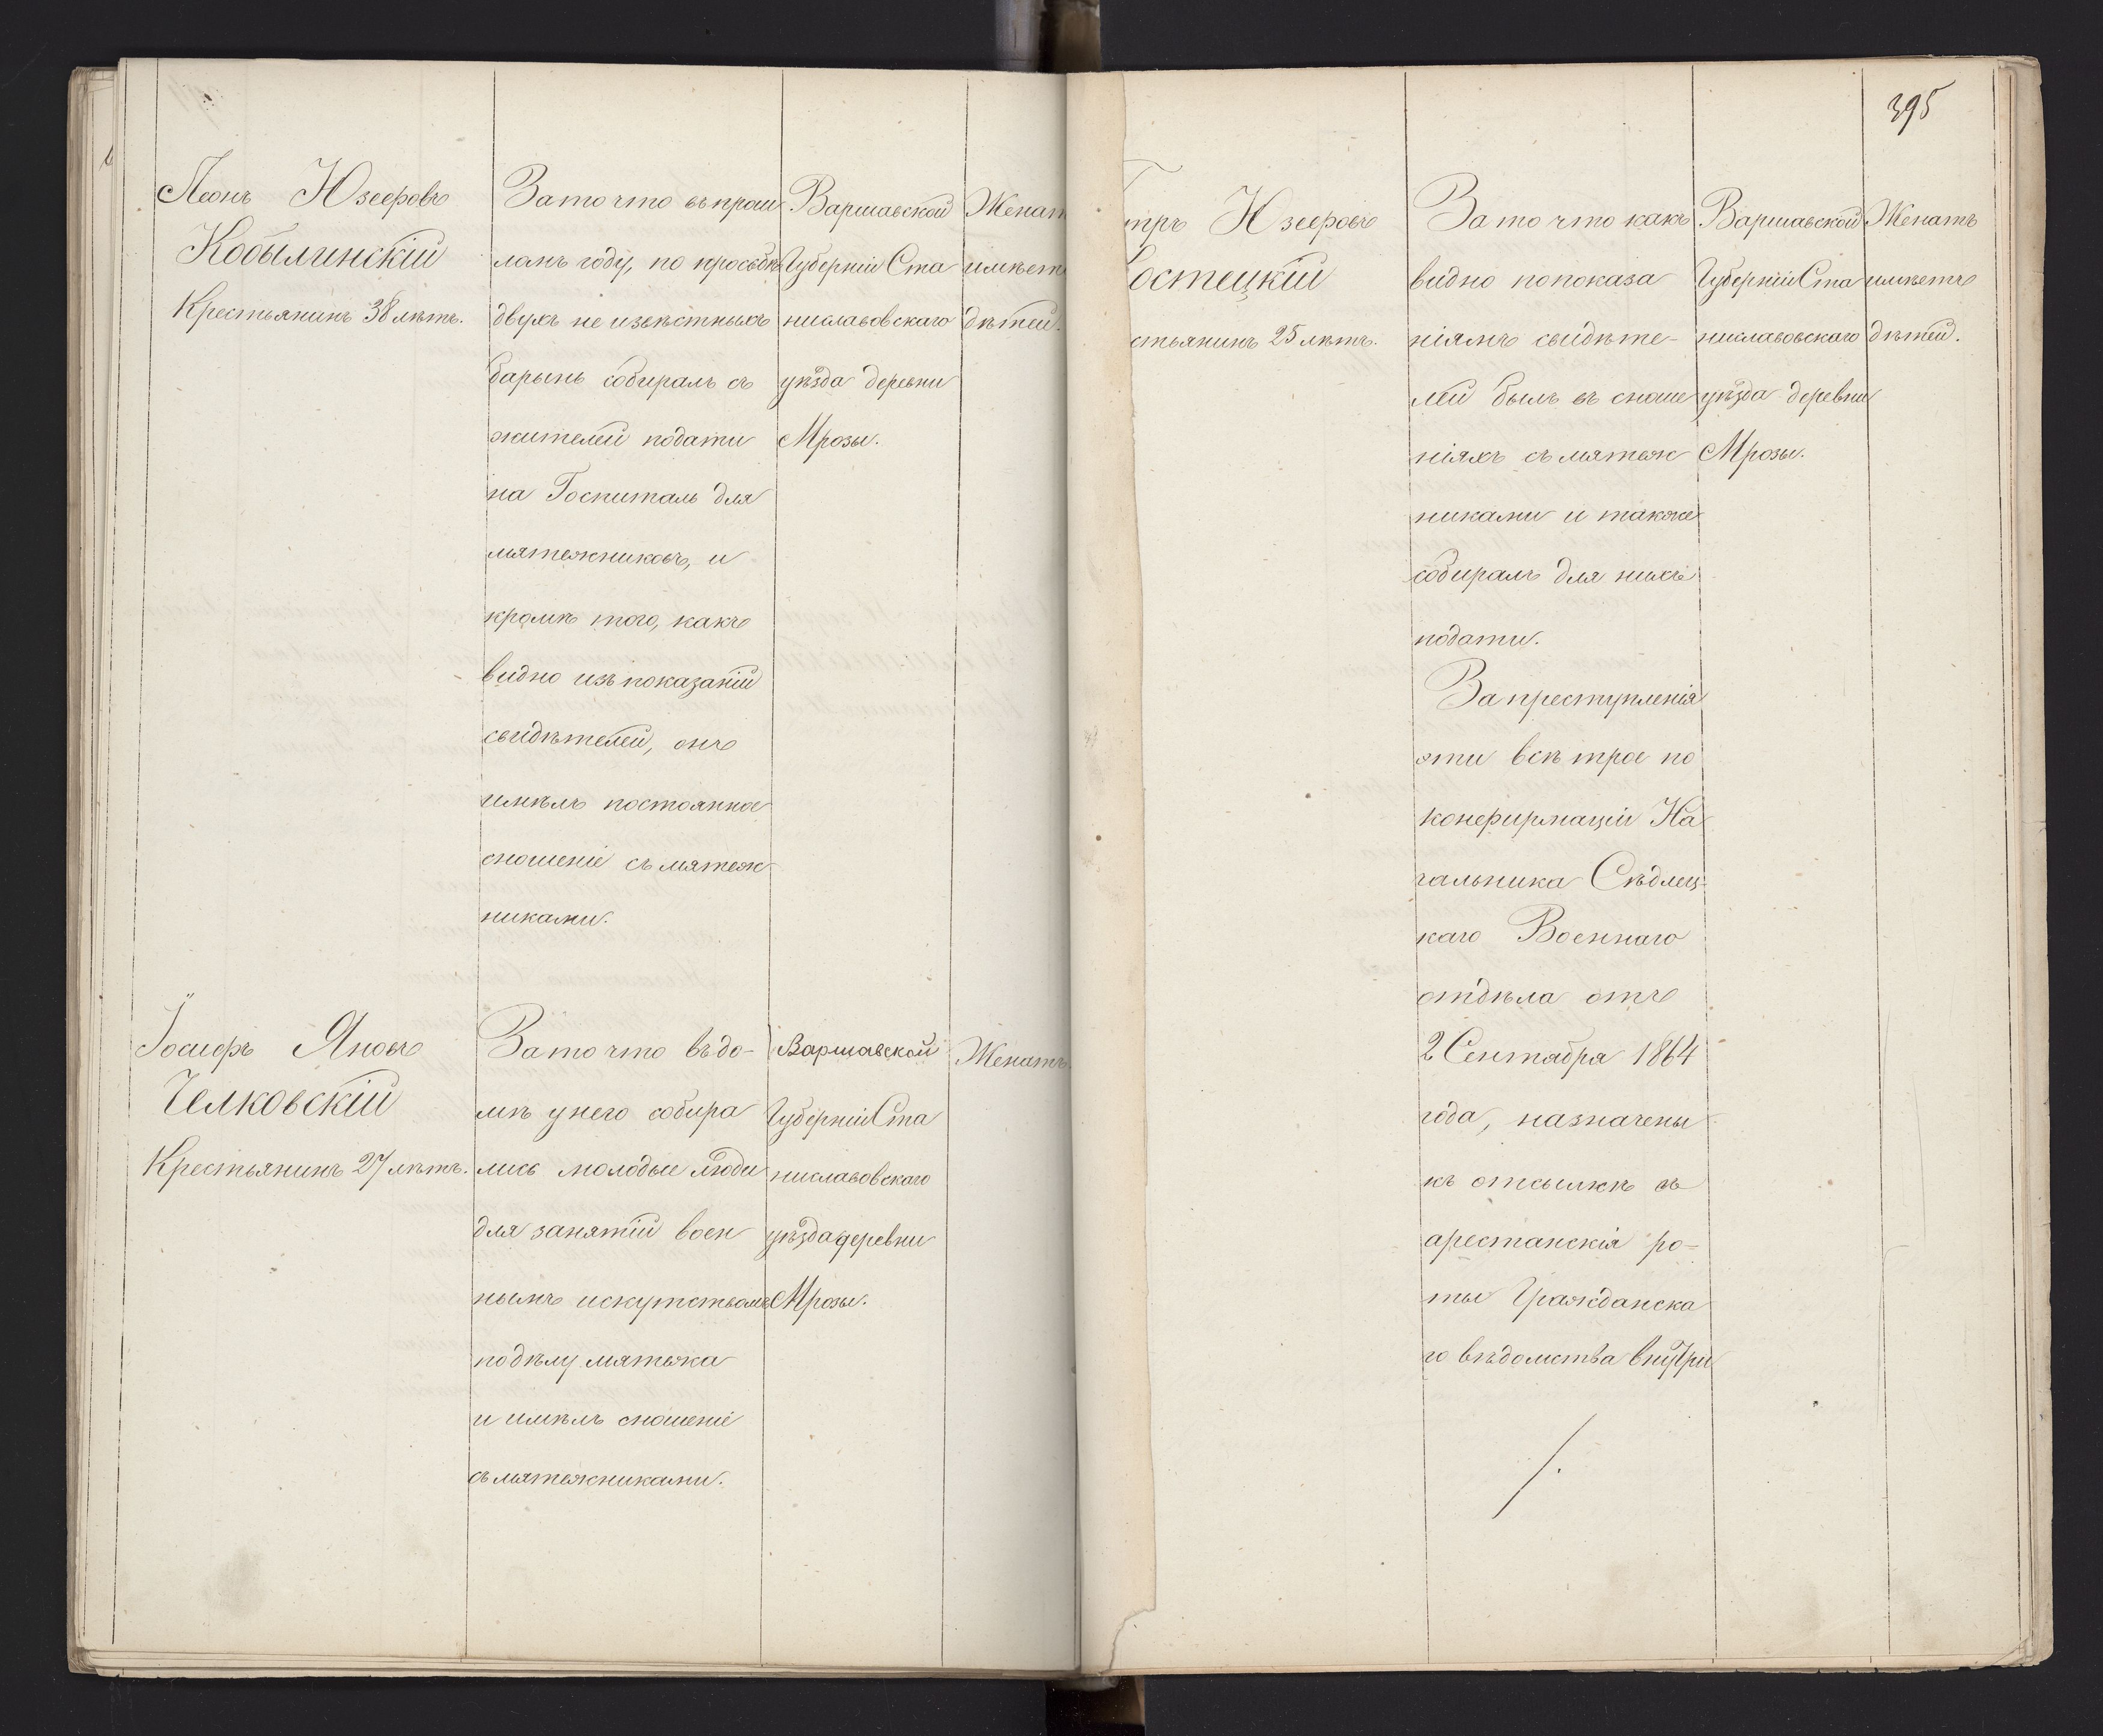 395
Леонъ Юзефовъ
Кобылинскій
Крестьянинъ 38 лѣтъ.
За то что въ прош
ломъ году, по просьбѣ
двухъ не извѣстныхъ
барынь собиралъ съ
жителей подати
на Госпиталь для
мятежниковъ, и
кромѣ того, какъ
видно изъ показаній
свидѣтелей, онъ
имѣлъ постоянное
сношеніе съ мятеж
никами.
Варшавской
Губерніи Ста
ниславовскаго
уѣзда деревни
Мрозы.
Женат
имѣетъ
дѣтей.
Іосифъ Яновъ
Челковскій
Крестьянинъ 27 лѣтъ.
За то что въ до-
мѣ у него собира
лись молодые люди
для занятій воен
нымъ искуствомъ
по дѣлу мятежа
и имѣлъ сношеніе
съ мятежниками.
Варшавской
Губерніи Ста
ниславовскаго
уѣзда деревни
Мрозы.
Женатъ.
тръ Юзефовъ
остецкій
стьянинъ 25 лѣтъ.
За то что какъ
видно по показа
ніямъ свидѣте-
лей былъ въ сноше
ніяхъ съ мятеж
никами и также
собиралъ для нихъ
подати.
За преступленія
эти всѣ трое по
конфирмаціи На
чальника Сѣдлец-
каго Военнаго
отдѣла отъ
2 Сентября 1864
года, назначены
къ отсылкѣ въ
арестанскія ро-
ты Гражданска
го вѣдомства внутри
Варшавской
Губерніи Ста
ниславовскаго
уѣзда деревни
Мрозы.
Женатъ
имѣетъ
дѣтей.